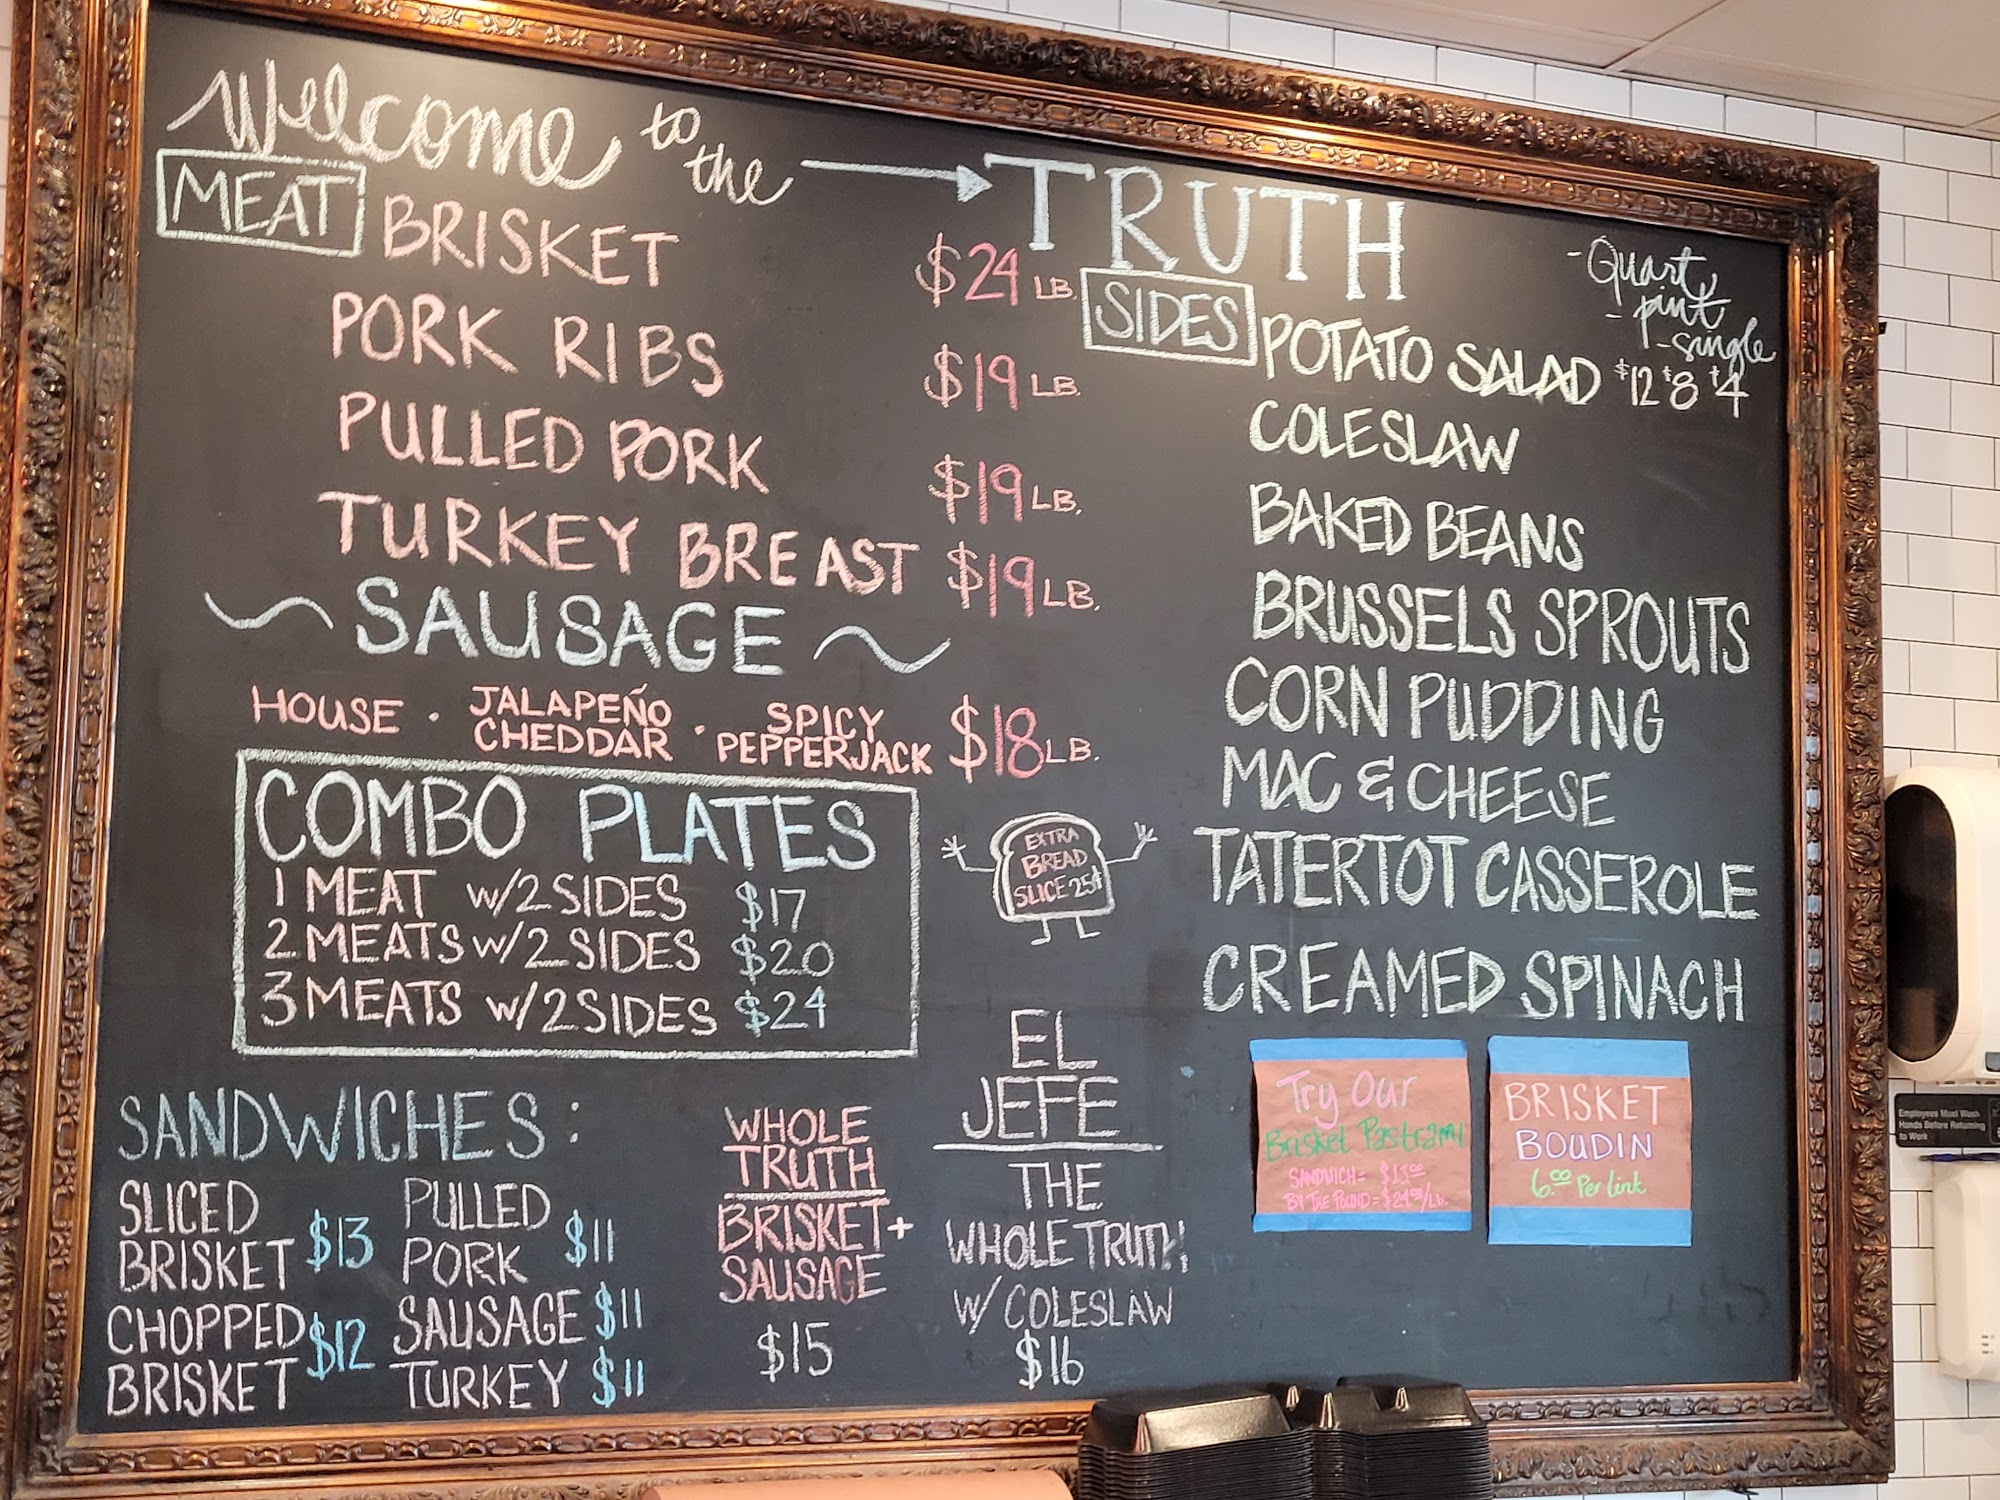 Welcome to the TRUTH
MEAT
BRISKET $24 LB.
PORK RIBS $19 LB.
PULLED PORK $19 LB.
TURKEY BREAST $19 LB.
SAUSAGE
HOUSE · JALAPEÑO CHEDDAR · SPICY PEPPERJACK $18 LB.
COMBO PLATES
1 MEAT W/2 SIDES $17
2 MEATS W/2 SIDES $20
3 MEATS W/2 SIDES $24
EXTRA
BREAD
SLICE 25¢
SANDWICHES:
SLICED BRISKET $13
CHOPPED BRISKET $12
PULLED PORK $11
SAUSAGE $11
TURKEY $11
WHOLE
TRUTH
BRISKET +
SAUSAGE
$15
EL
JEFE
THE
WHOLE TRUTH
W/ COLESLAW
$16
SIDES
- Quart
- pint
- single
POTATO SALAD $12 $8 $4
COLESLAW
BAKED BEANS
BRUSSELS SPROUTS
CORN PUDDING
MAC & CHEESE
TATERTOT CASSEROLE
CREAMED SPINACH
Try Our
Brisket Pastrami
SANDWICH = $13.00
BY THE POUND = $24.00/LB.
BRISKET
BOUDIN
6.00 Per link
Employees Must Wash
Hands Before Returning
to Work